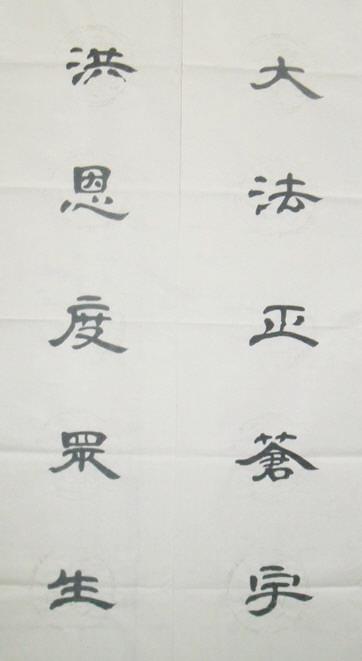 大法正蒼宇
洪恩度眾生